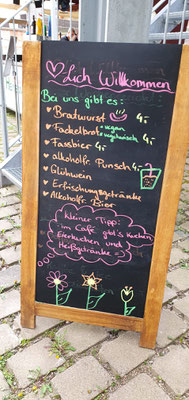 ♡Lich Willkommen
Bei uns gibt es:
♥ Bratwurst 4,-
♥ Fackelbrot • vegan
• vegetarisch 4,-
♥ Fassbier 4,-
♥ alkoholfr. Punsch 4,-
♥ Glühwein
♥ Erfrischungsgetränke
♥ Alkoholfr. Bier
Kleiner Tipp:
im Café gibt's Kuchen
Eierkuchen und
Heißgetränke